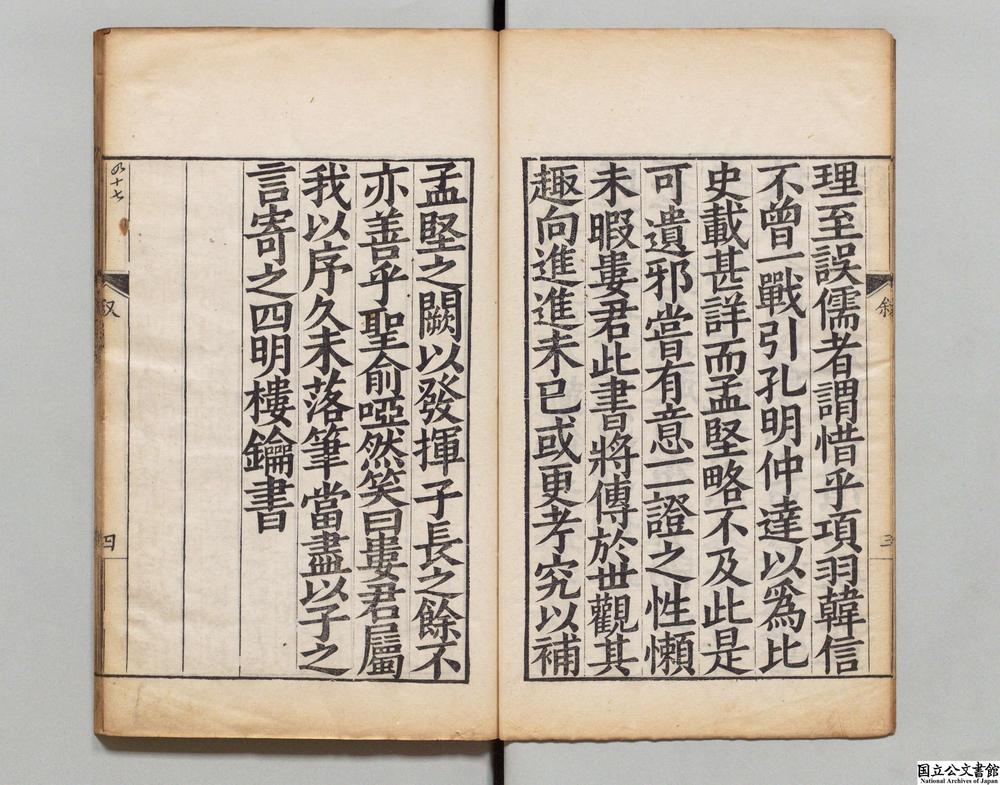 理至誤儒者謂惜乎項羽韓信
不曾一戰引孔明仲達以為比
史載甚詳而孟堅略不及此是
可遺邪嘗有意一二證之性懶
未暇婁君此書將傳於世觀其
趣向進進未已或更考究以補
敘
三
孟堅之闕以發揮子長之餘不
亦善乎聖俞啞然笑曰婁君屬
我以序久未落筆當盡以子之
言寄之四明樓鑰書
叙
四
九十七
国立公文書館
National Archives of Japan